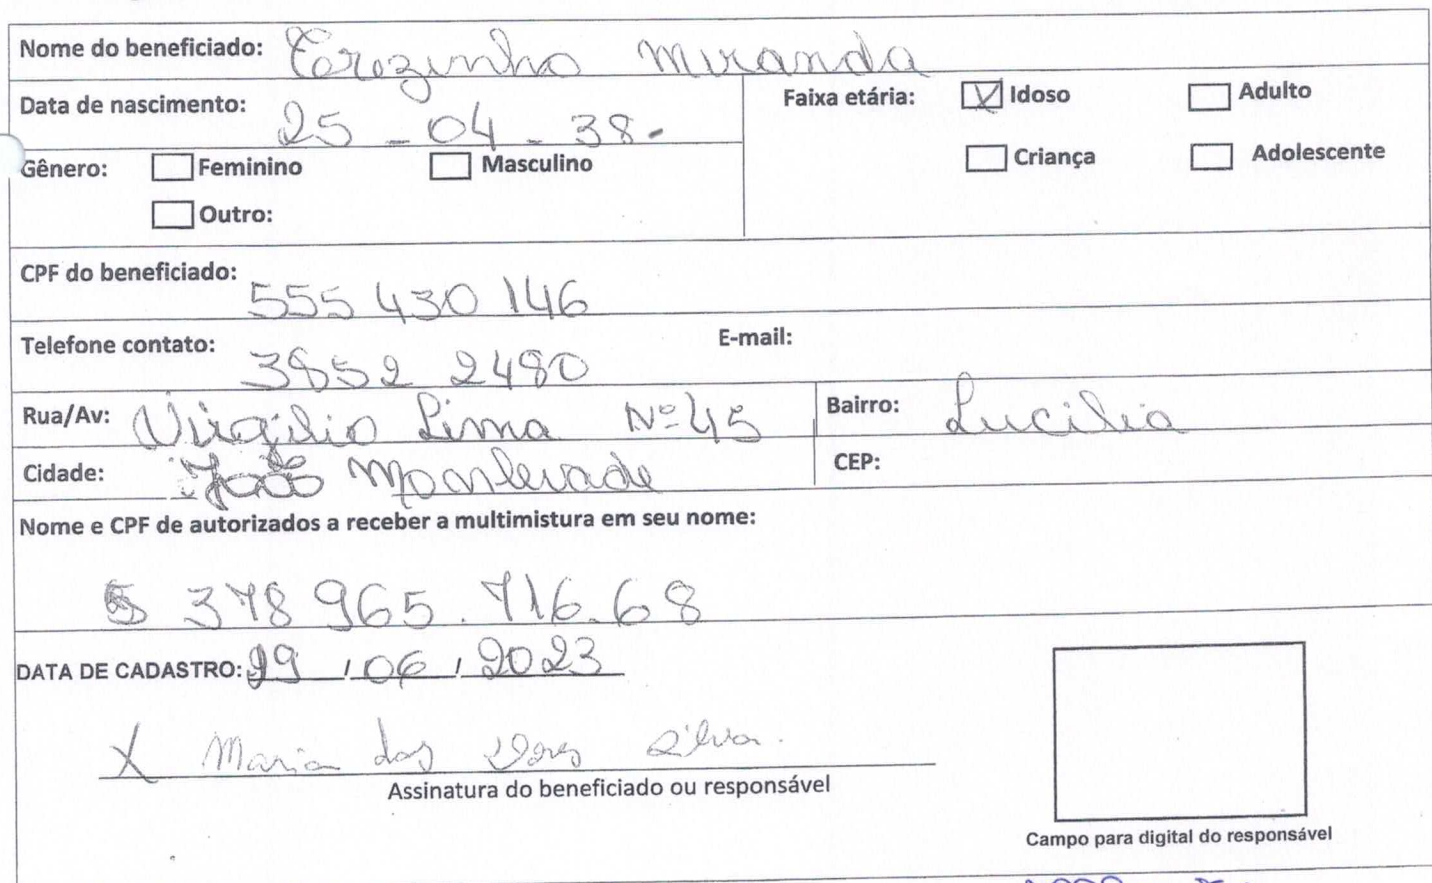 Nome do beneficiado: Terezinha Miranda
Data de nascimento: 25 - 04 - 38-
Faixa etária: X Idoso Adulto
Criança Adolescente
Gênero: Feminino Masculino
Outro:
CPF do beneficiado: 555 430 146
Telefone contato: 3852 2480 E-mail:
Rua/Av: Virgilio Lima Nº 45 Bairro: Lucilia
Cidade: João Monlevade CEP:
Nome e CPF de autorizados a receber a multimistura em seu nome:
378 965. 716.68
DATA DE CADASTRO: 29 / 06 / 2023
X Maria das Dores Silva.
Assinatura do beneficiado ou responsável
Campo para digital do responsável